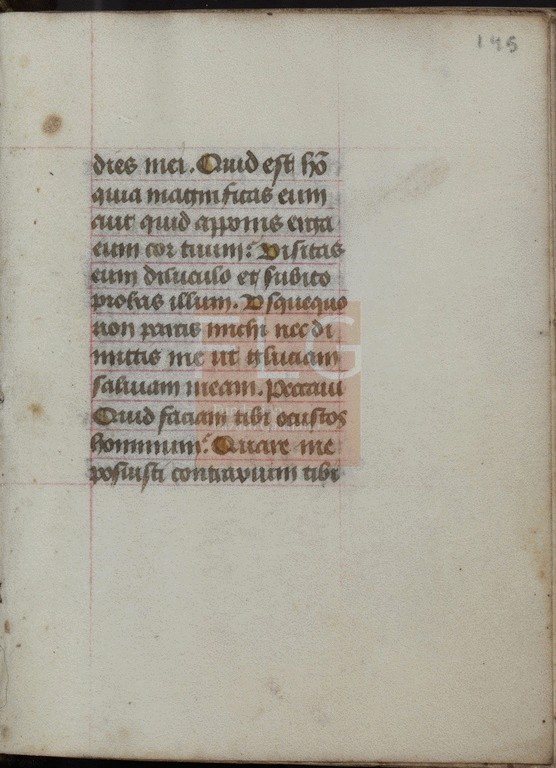 145
dies mei. Quid est hō
quia magnificas eum
aut quid apponis erga
eum cor tuum: Visitas
eum diluculo et subito
probas illum. Vsquequo
non parcis michi nec di
mittis me ut gluciam
saliuam meam. Peccaui
Quid faciam tibi o custos
hominum: Quare me
posuisti contrarium tibi
FLG